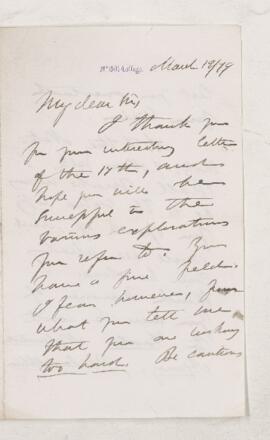 McGill College, March 19/79
My dear Sir,
I thank you
for your interesting letter
of the 17th, and I
hope you will be
successful in the
various explorations
you refer to. You
have a fine field.
I fear however, from
what you tell me
that you are working
too hard. Be cautious